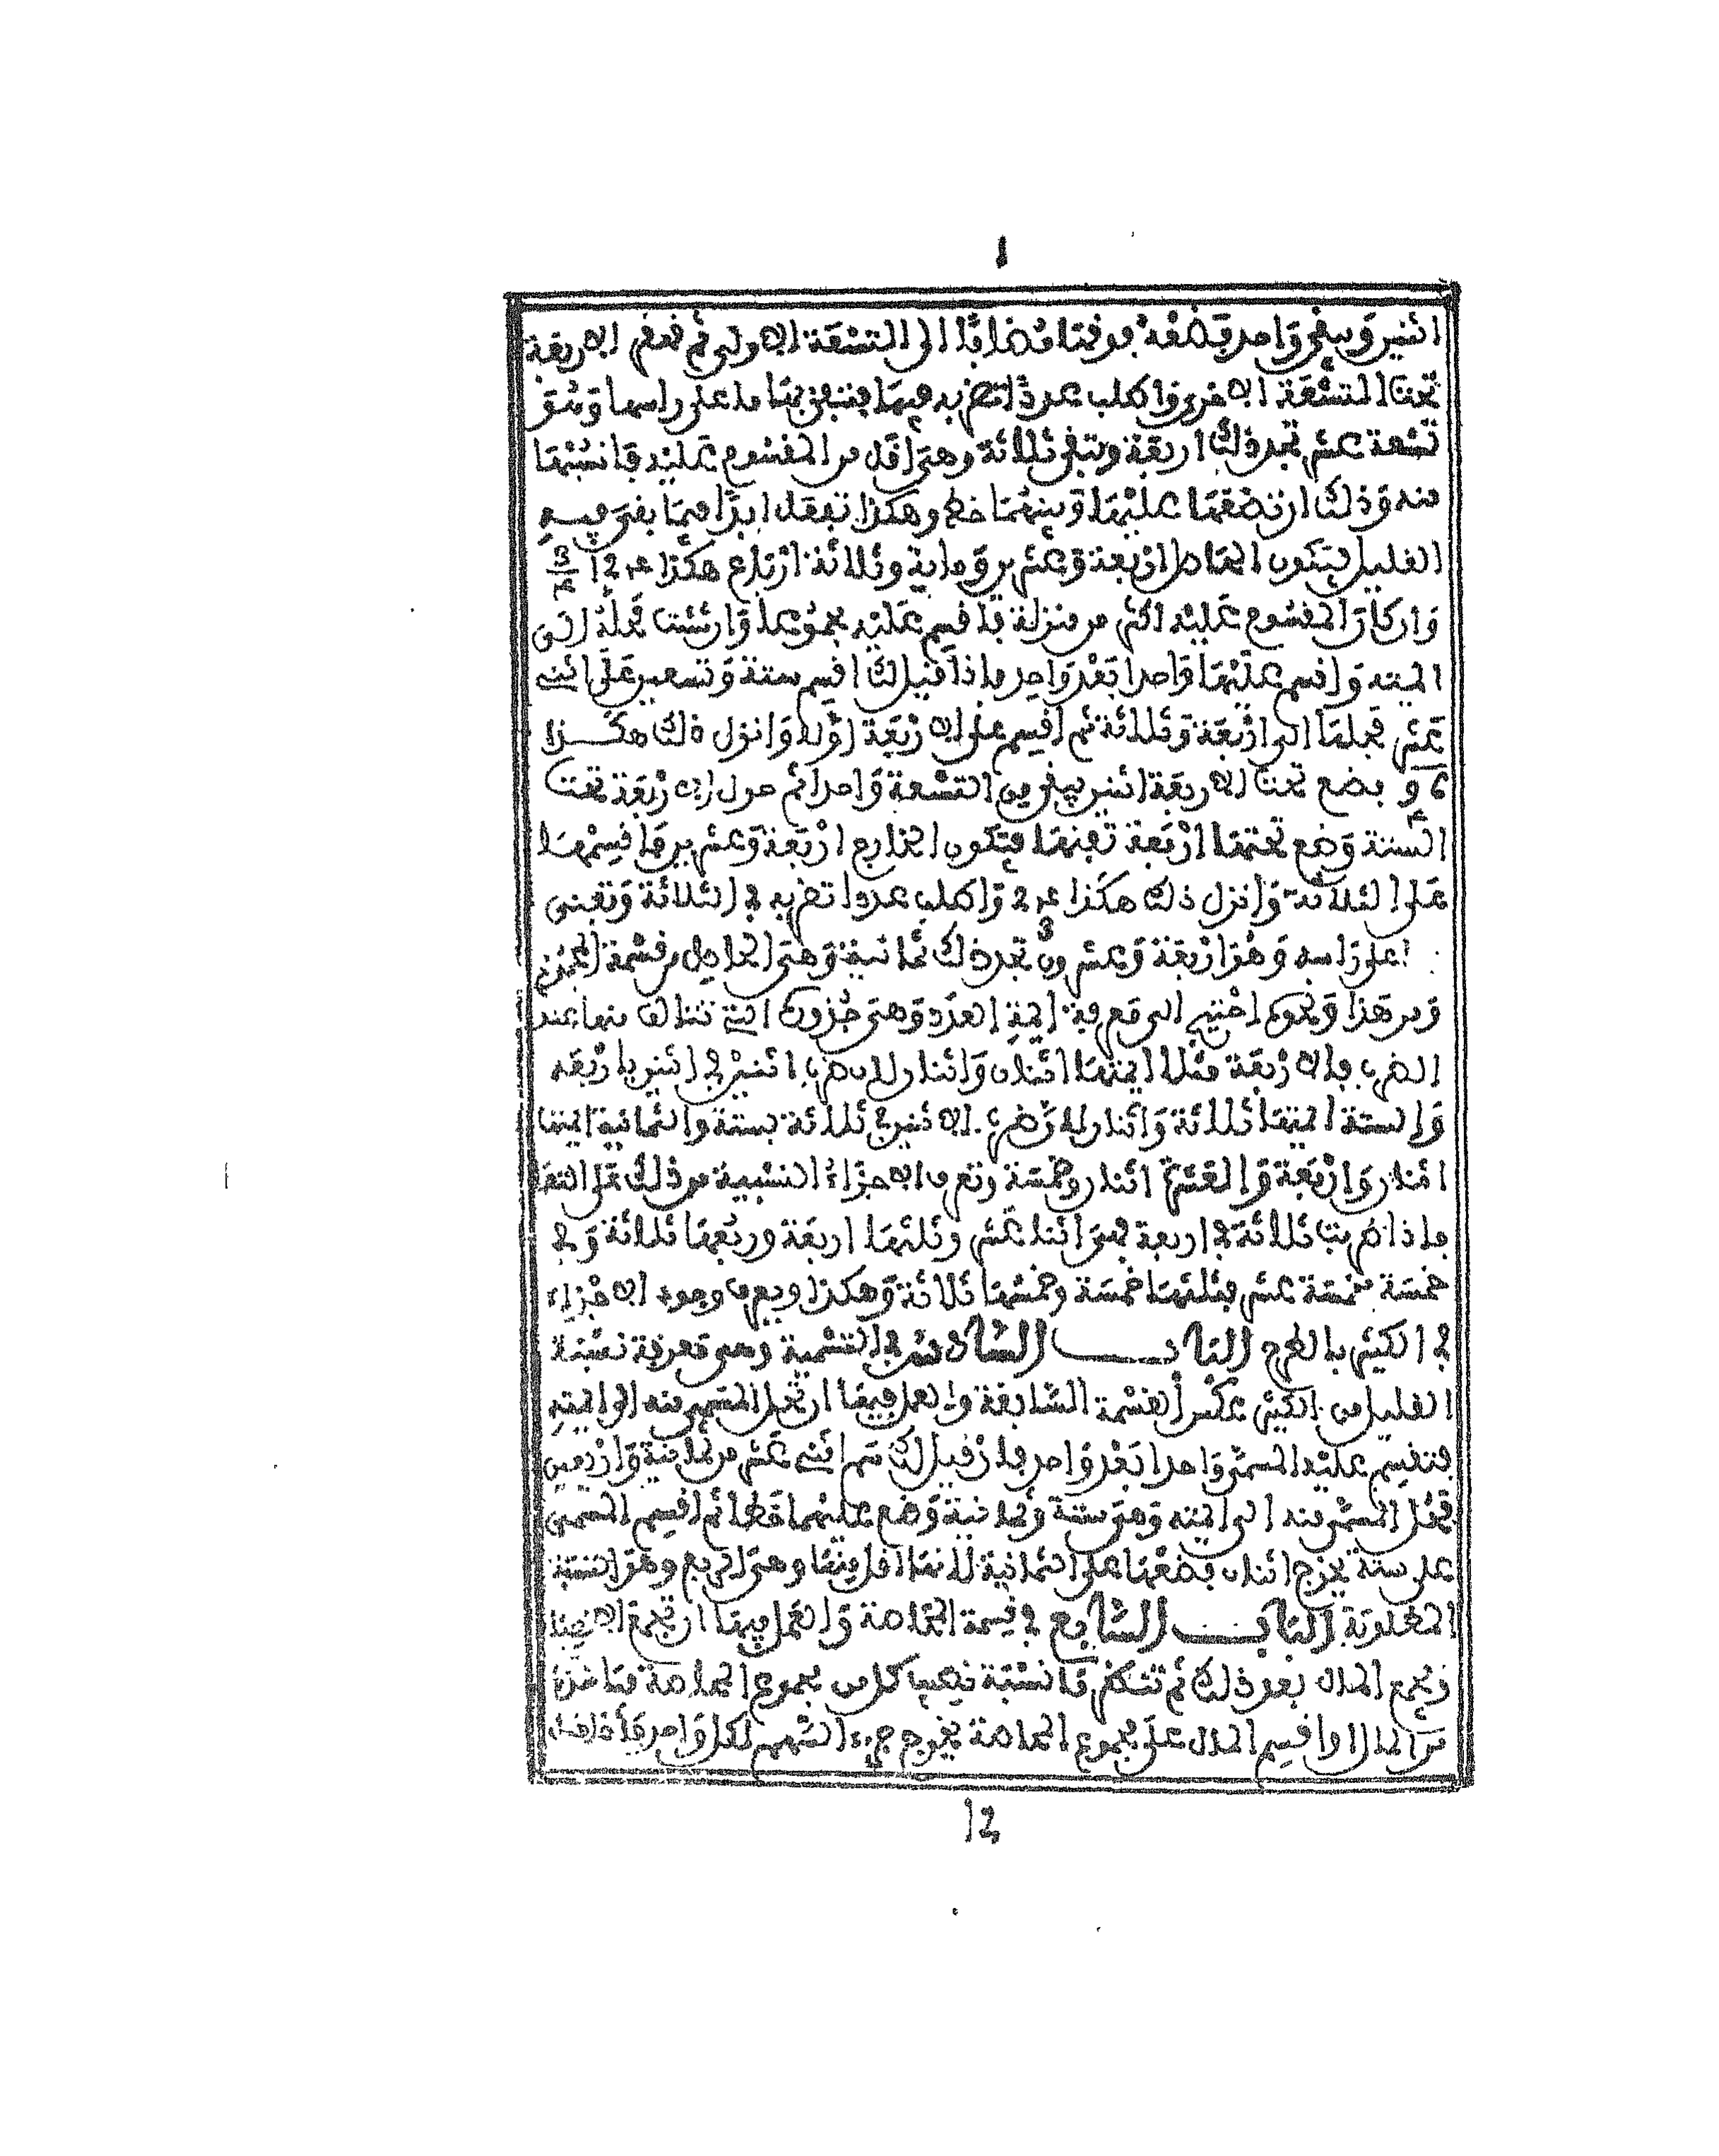 اثنين ويبقى واحد فضعه فوقها مضافا الى التسعة الاولى ثم قهقر الاربعة
تحت التسعة الاخرى واطلب عددا تضربه فيها فتفنى بها ما على راسها وهو
تسعة عشر تجد ذلك اربعة وتبقى ثلاثة وهي اقل من المقسوم عليه فانسبها
منه وذلك ان تضعها عليها وبينهما خط وهكذا تفعل ابدا فيما بقي فيه
القليل فيكون الحاصل اربعة وعشرين وماية وثلاثة ارباع هكذا 124 3/4
وان كان المقسوم عليه اكثر من منزلة فاقسم عليه مجموعا وان شئت فحله الى
ايمته واقسم عليها واحدا بعد واحد فاذا قيل لك اقسم ستة وتسعين على اثني
عشر فحلها الى اربعة وثلاثة ثم اقسم على الاربعة اولا وانزل ذلك هكذا
96 4 بضع تحت الاربعة اثنين يبقى من التسعة واحدا ثم حول الاربعة تحت
الستة وضع تحتها اربعة تفنها فيكون الخارج اربعة وعشرين فاقسمها
على الثلاثة وانزل ذلك هكذا 24 3 واطلب عددا تضربه في الثلاثة وتفنى
ما على راسه وهو اربعة وعشرون تجد ذلك ثمانية وهي الحاصل من قسمة المجموع
ومن هذا ونحوه احتيج الى معرفة ايمة العدد وهي جزوه التي تتالف منها عند
الضرب فالاربعة مثلا ايمتها اثنان واثنان لان ضرب اثنين في اثنين باربعة
والستة ايمتها ثلاثة واثنان لان ضرب الاثنين في ثلاثة بستة والثمانية ايمتها
اثنان واربعة والعشرة اثنان وخمسة وتعرف الاجزاء النسبية من ذلك على التفا
فاذا ضربت ثلاثة في اربعة فهي اثنا عشر وثلثها اربعة وربعها ثلاثة وفي
خمسة خمسة عشر فثلثها خمسة وخمسها ثلاثة وهكذا ويعرف وجود الاجزاء
في الكثير بالطرح الباب السادس في التسمية وهي معرفة نسبة
القليل من الكثير عكس القسمة السابقة والعمل فيها ان تحل المسمى منه الى ايمته
فتقسم عليه المسمى واحدا بعد واحد فان قيل لك سم اثني عشر من ثمانية واربعين
فحل المسمى منه الى ايمته وهو ستة وثمانية وضع عليهما خطا ثم اقسم المسمى
على ستة يخرج اثنان فضعها على الثمانية لانها اقل منها وهي الربع وهو النسبة
المطلوبة الباب السابع في قسمة المحاصة والعمل فيها ان تجمع الانصبا
وتجمع المال بعد ذلك ثم تنظر ما نسبة نصيب كل من مجموع المحاصة فياخذه
من المال او اقسم المال على مجموع المحاصة يخرج جزء السهم لكل واحد فاذا قيل
12